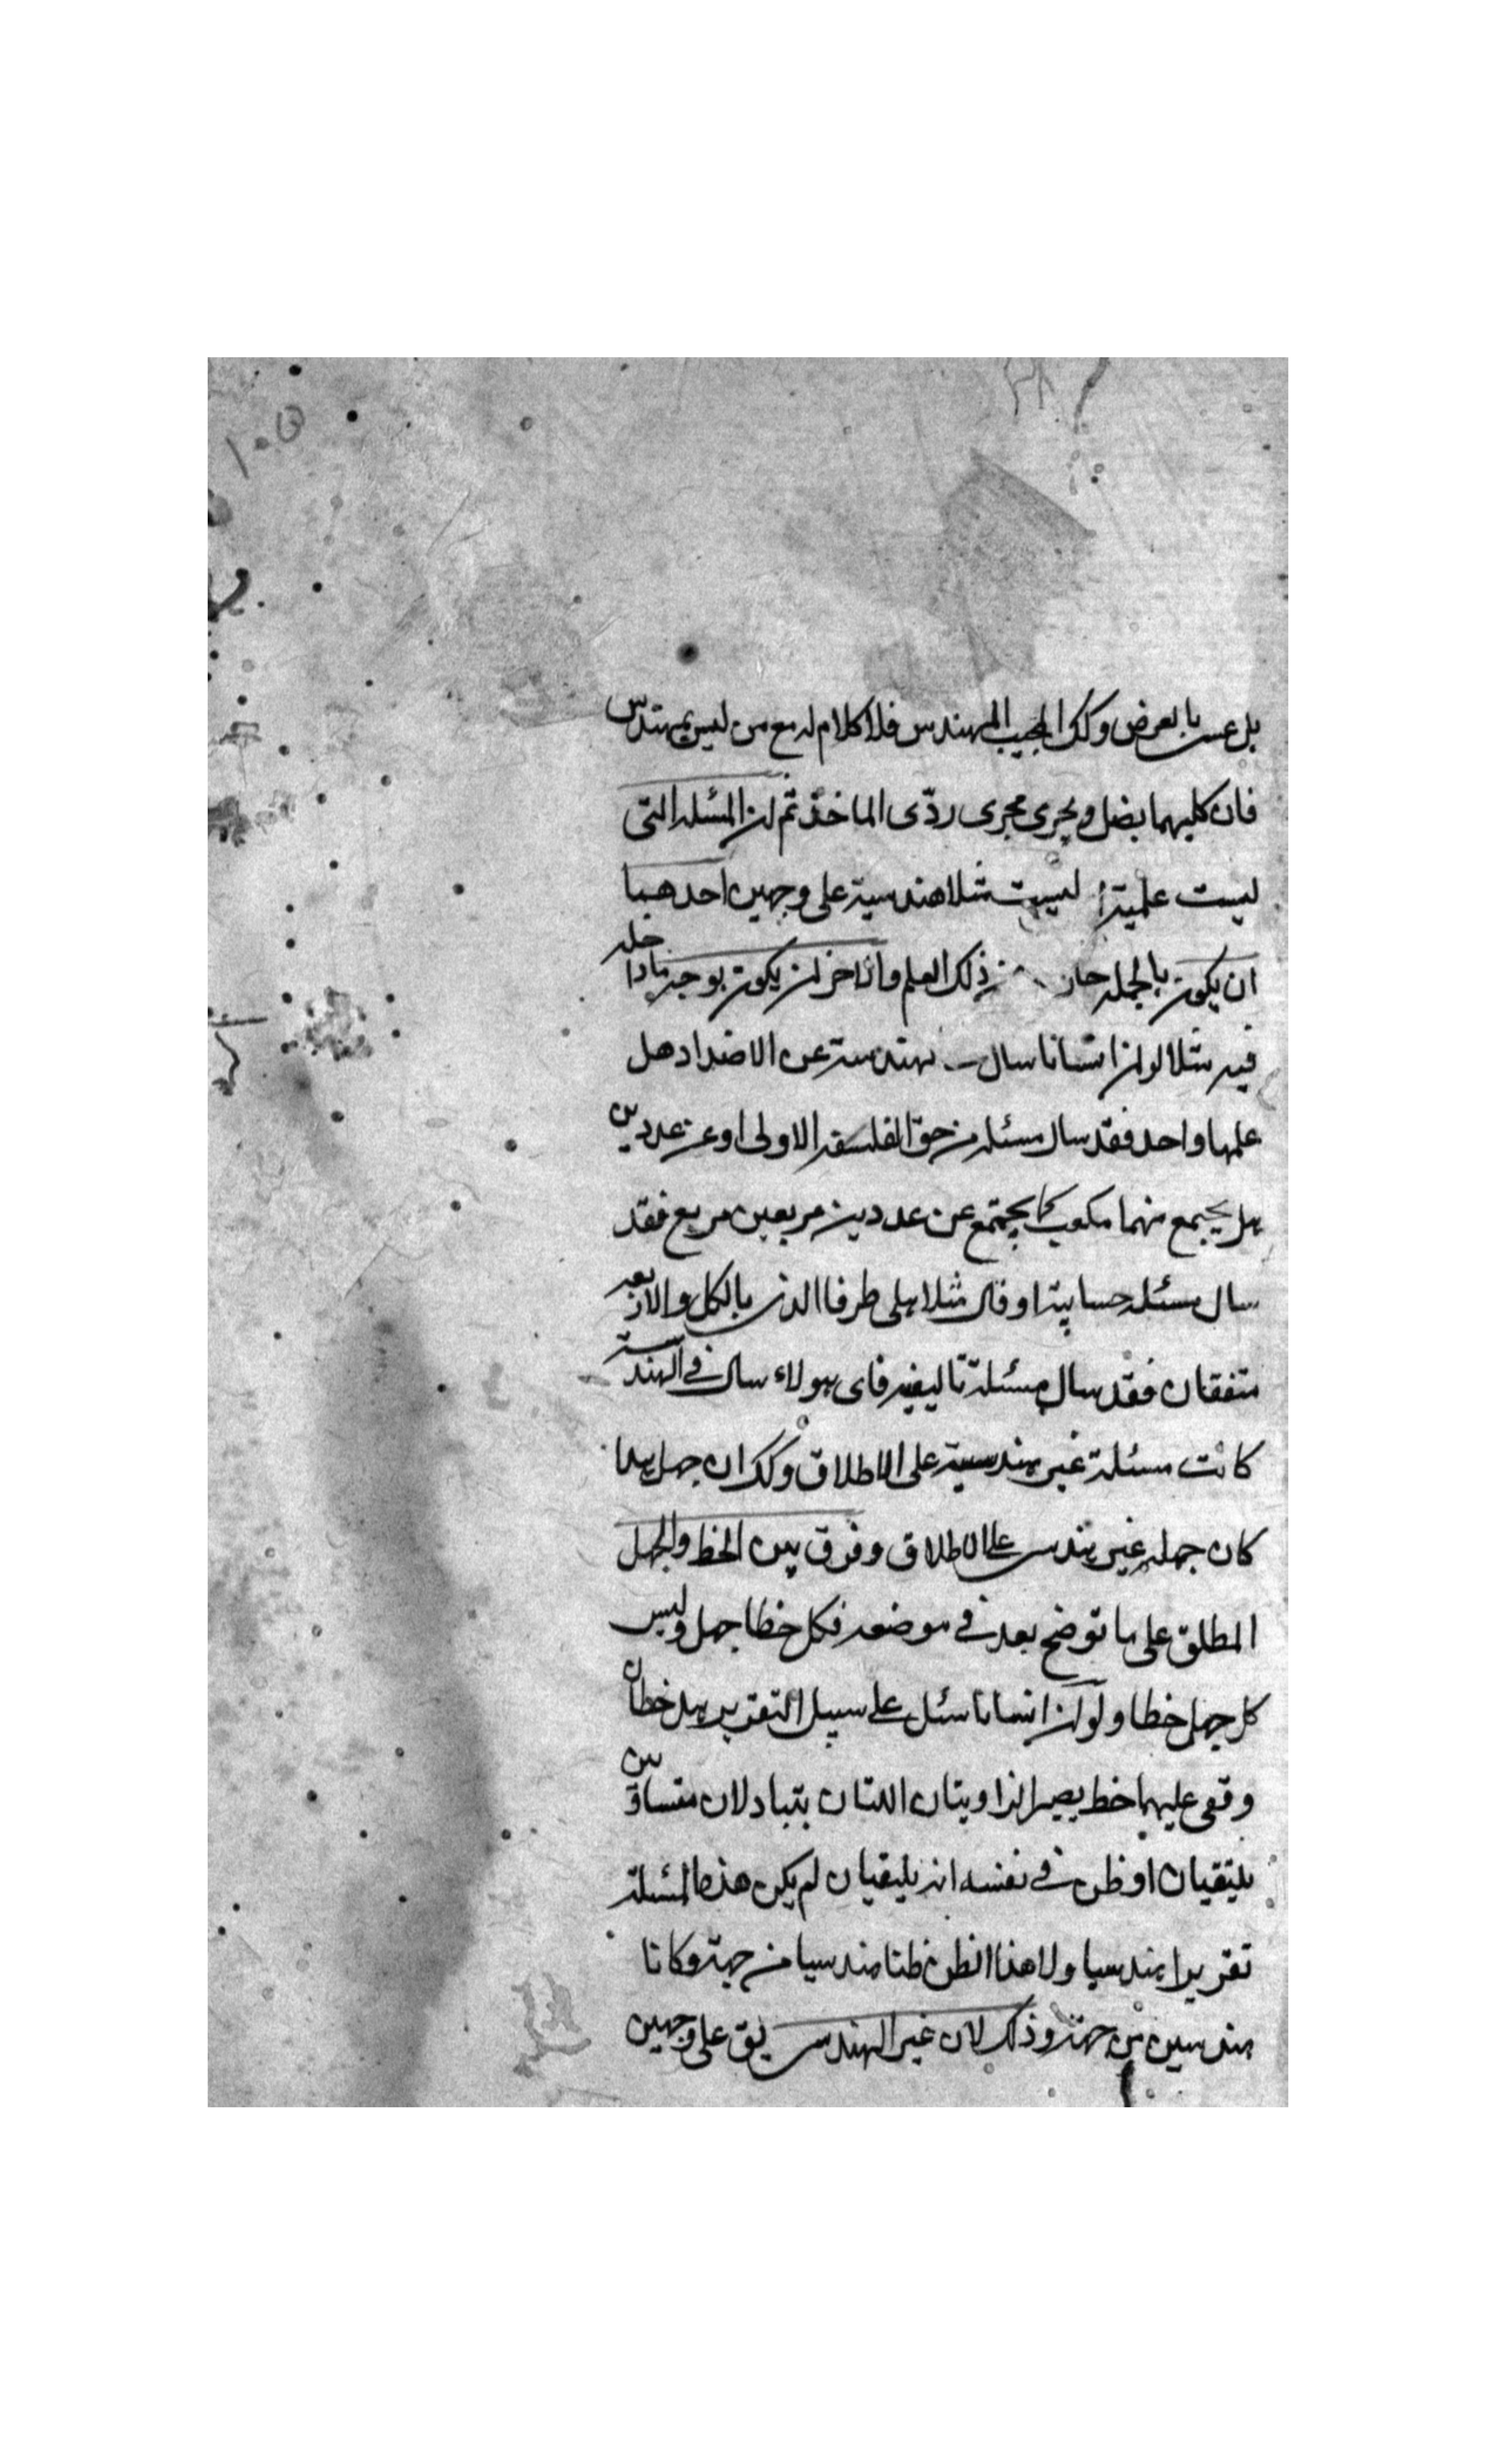 بل عسى بالعرض وكك المجيب المهندس فلا كلام له مع من ليس بمهندس
فان كليهما يضل ويجرى مجرى ردّى الماخذ ثم ان المسئلة التى
ليست علمية ليست مثلا هندسية على وجهين احدهما
ان يكون بالجملة خار من ذلك العلم واخر ان يكون بوجه ما داخله
فيه مثلا لو ان انسانا سال بهندسة عن الاضداد هل
علمها واحد فقد سال مسئلة من حق الفلسفة الاولى او عن عددين
هل يجتمع منهما مكعب كما يجتمع عن عددين مربعين مربع فقد
سال مسئلة حسابية او قال مثلا هل طرفا الذى بالكل والاربعة
متفقان فقد سال مسئلة تاليفية فاى هولاء سال فى الهندسة
كانت مسئلة غير هندسية على الاطلاق وكك ان جهل هذا
كان جهله غير هندسى على الاطلاق وفرق بين الخطا والجهل
المطلق على ما توضح بعد فى موضعه فكل خطا جهل وليس
كل جهل خطا ولو ان انسانا سئل على سبيل التقرير هل خطان
وقع عليهما خط يصير الزاويتان اللتان يتبادلان متساوين
يلتقيان او ظن فى نفسه انه يلتقيان لم يكن هذه المسئلة
تقريرا هندسيا ولا هذا الظن ظنا هندسيا من جهة وكانا
هندسيين من جهة وذلك لان غير الهندسى يق على وجهين
١٠٥